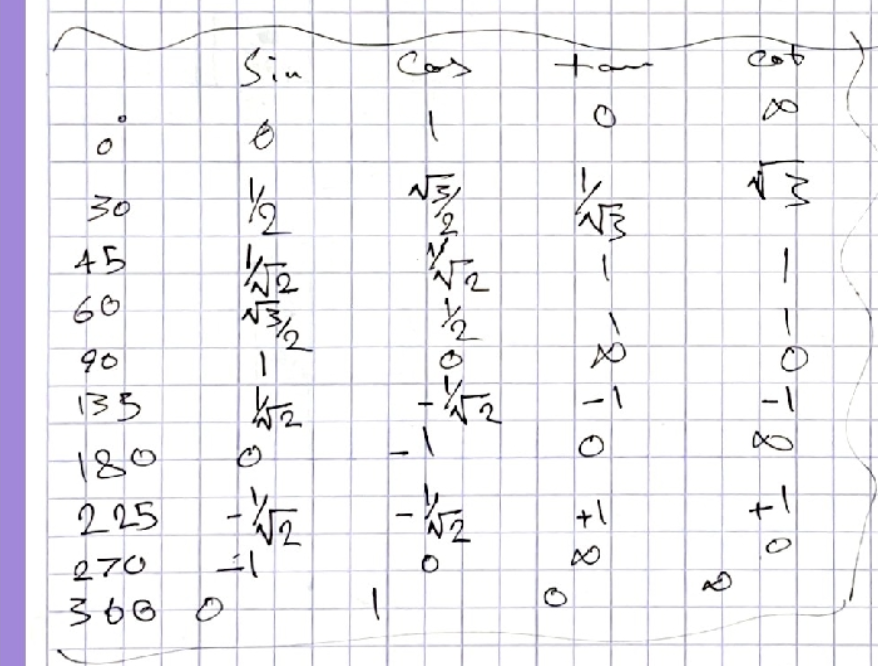 Sin Cos tan cot
0° 0 1 0 ∞
30 1/2 √3/2 1/√3 √3
45 1/√2 1/√2 1 1
60 √3/2 1/2 1 1
90 1 0 ∞ 0
135 1/√2 -1/√2 -1 -1
180 0 -1 0 ∞
225 -1/√2 -1/√2 +1 +1
270 -1 0 ∞ 0
360 0 1 0 ∞